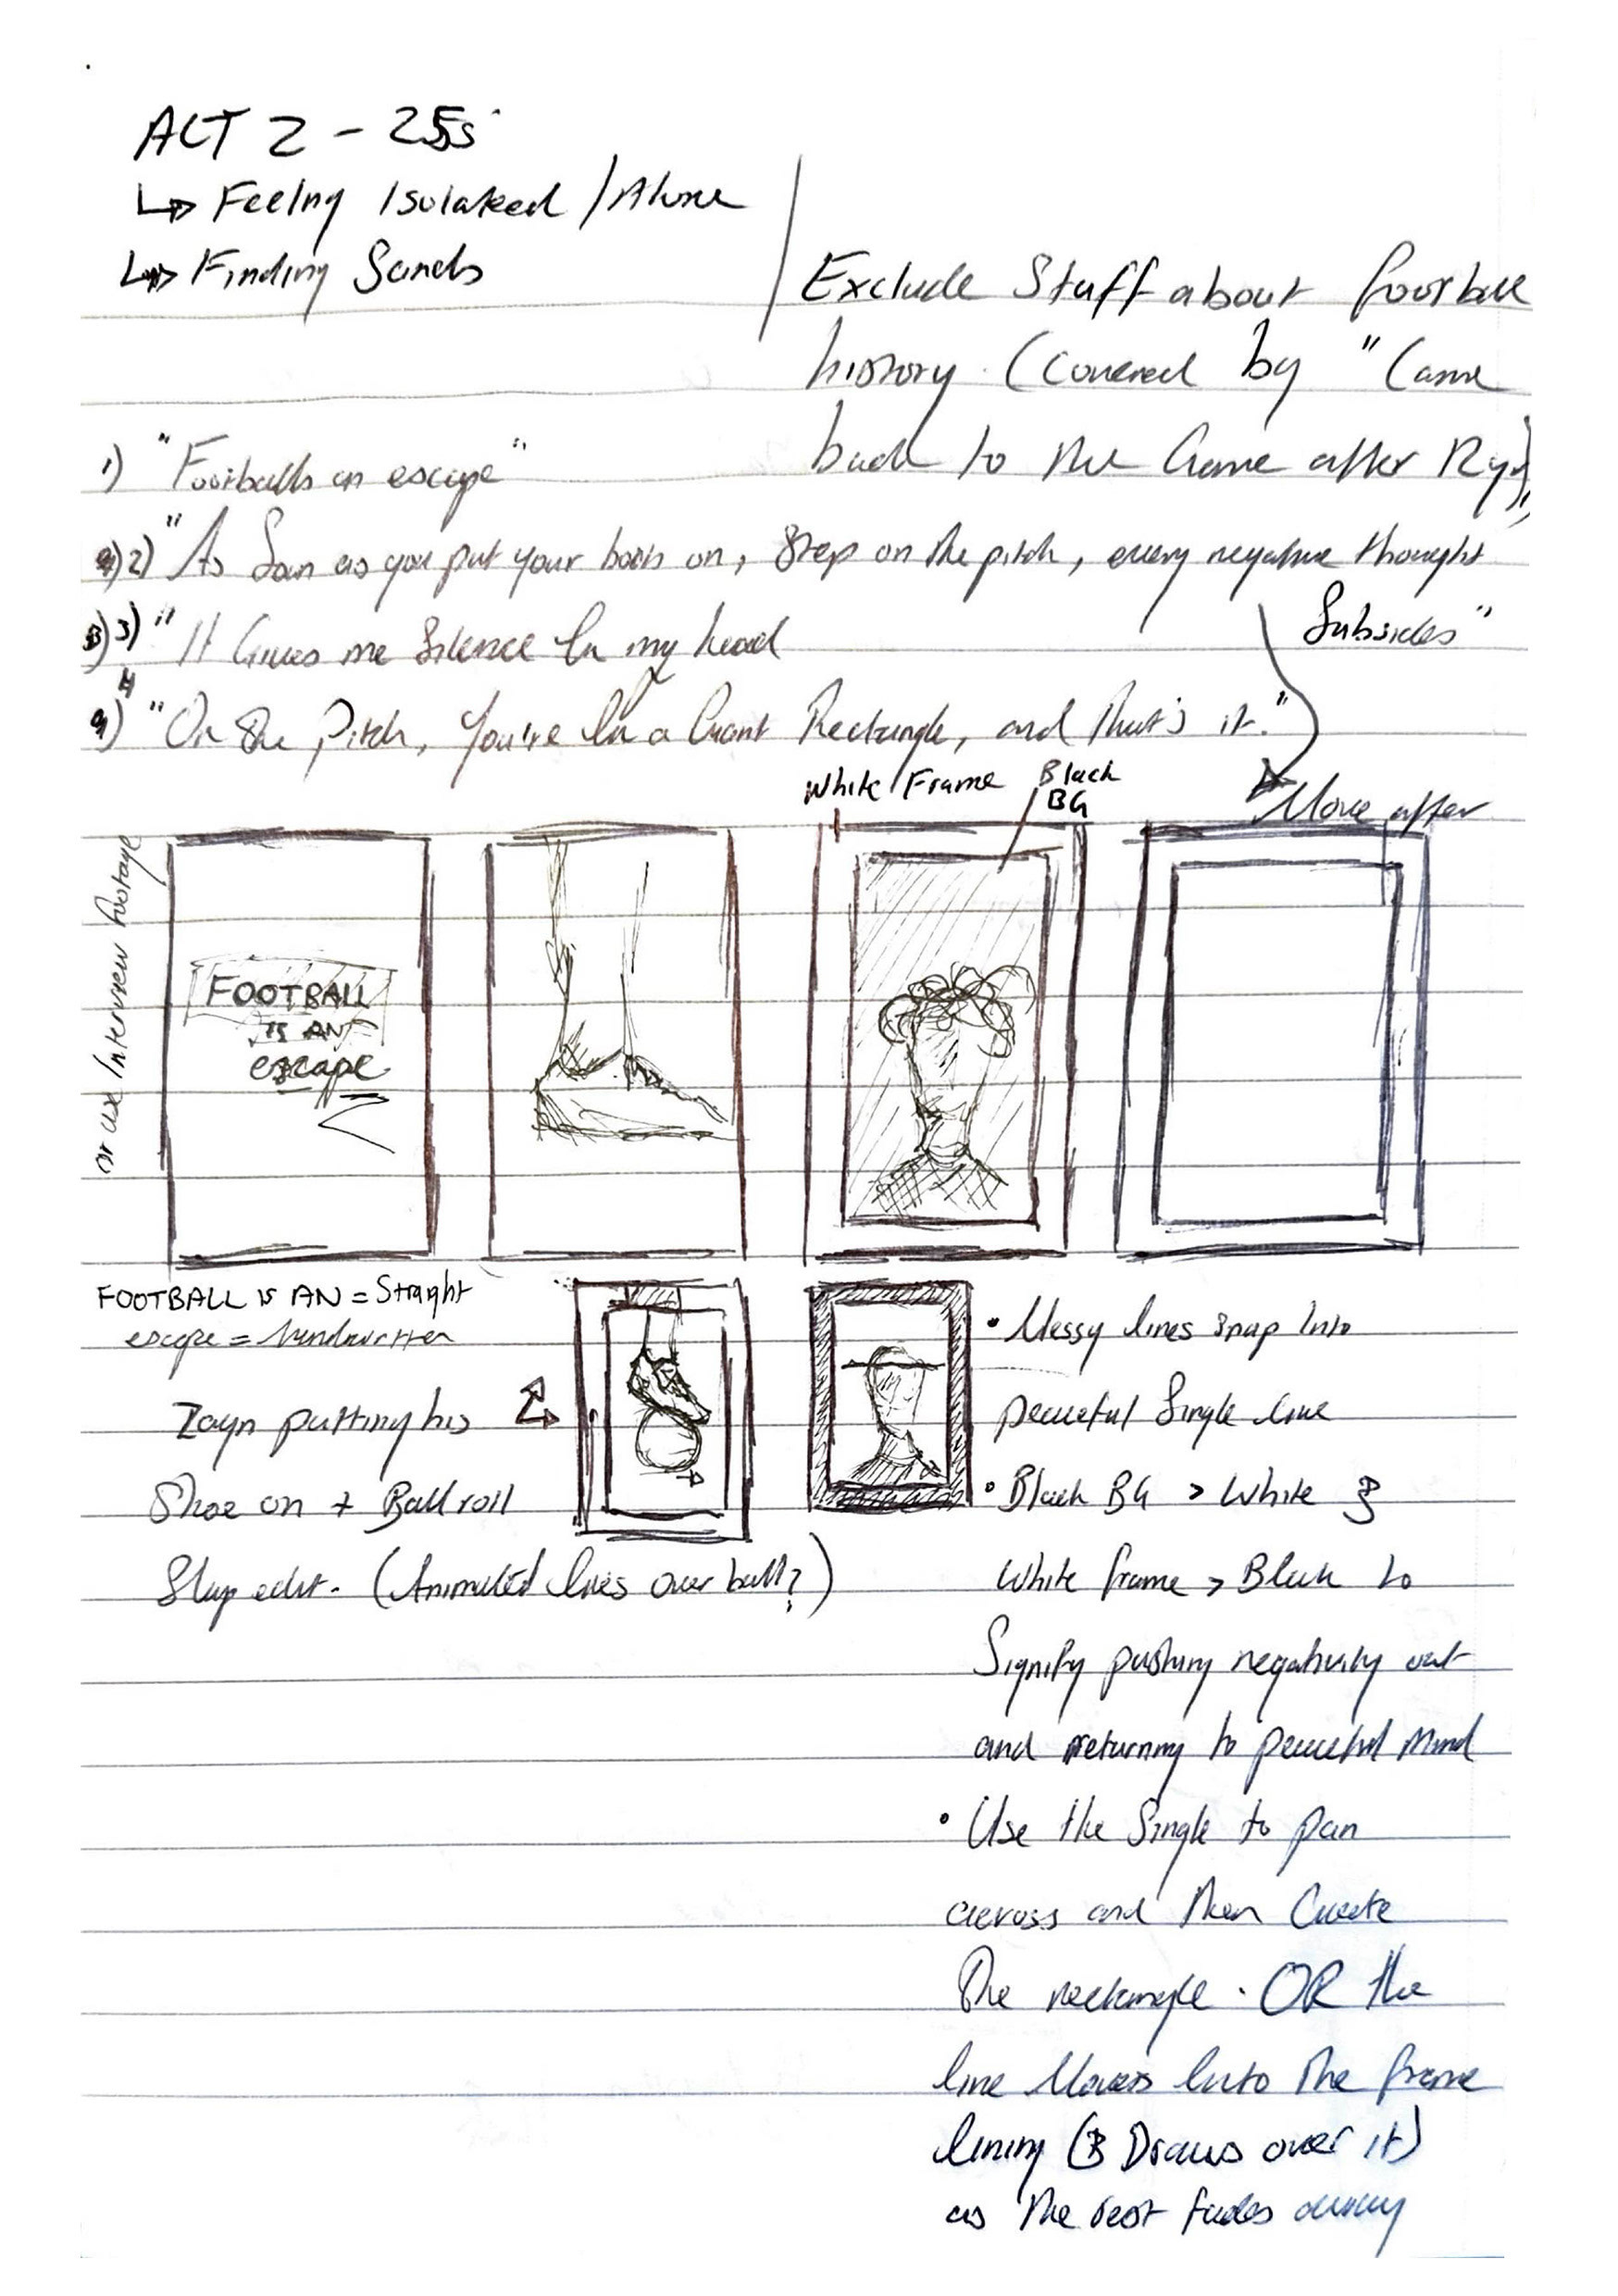 ACT 2 - 25s
↳ Feeling Isolated / Alone
↳ Finding Sands
Exclude Stuff about football
history. (Covered by "Came
back to the Game after Ryan"
1) "Footballs an escape"
2) "As Soon as you put your boots on, Step on the pitch, every negative thought
Subsides"
3) "It Gives me Silence In my head
4) "On The Pitch, You're In a Giant Rectangle, and that's it."
White Frame
Black
BG
Move after
or use Interview footage
FOOTBALL
IS AN
escape
FOOTBALL IS AN = Straight
escape = handwritten
Zayn putting his
Shoe on + Ball roll
Slap edit. (Animated lines over ball?)
• Messy lines snap Into
peaceful Single line
• Black BG > White &
White frame > Black to
Signify pushing negativity out
and returning to peaceful Mind
• Use the Single to pan
across and then Create
The rectangle. OR the
line Moves Into The frame
lining (& Draws over it)
as The rest fades away